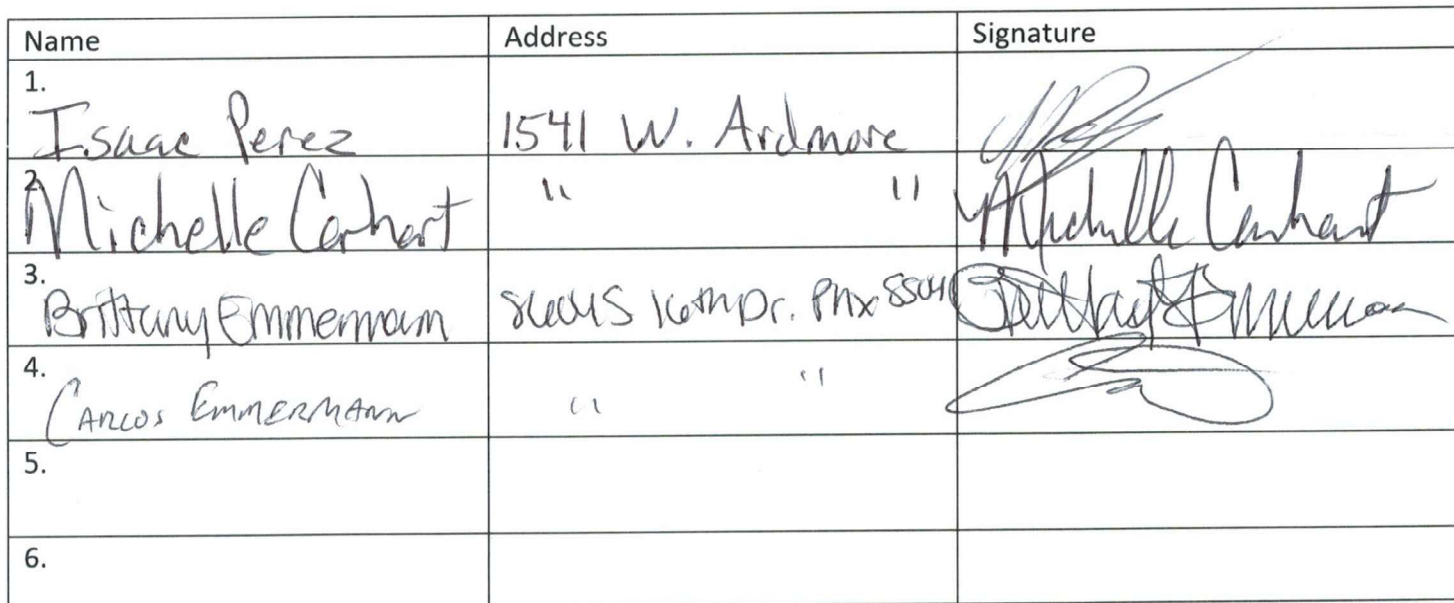 Name Address Signature
1.
Isaac Perez 1541 W. Ardmore
2.
Michelle Carhart " " Michelle Carhart
3.
Brittany Emmermann S 16th Dr. Phx Brittany Emmermann
4.
Carlos Emmermann " "
5.
6.